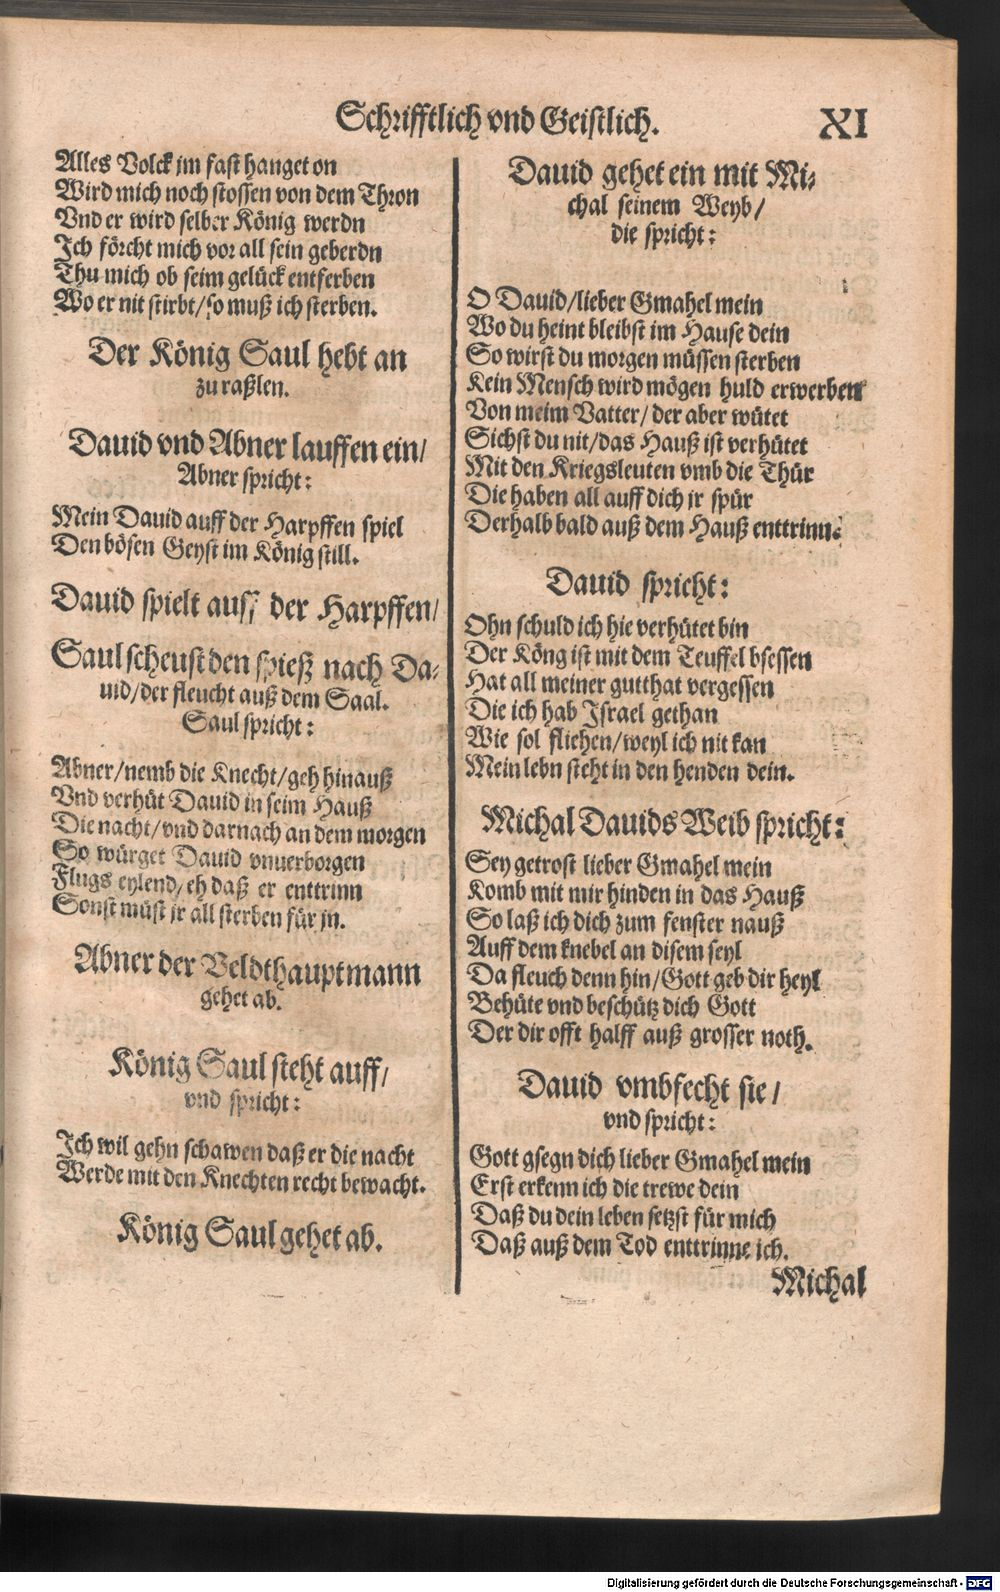 Schrifftlich vnd Geistlich.
XI
Alles Volck jm fast hanget on
Wird mich noch stossen von dem Thron
Vnd er wird selber König werdn
Ich förcht mich vor all sein geberdn
Thu mich ob seim gelück entferben
Wo er nit stirbt/so muß ich sterben.
Der König Saul hebt an
zu raßlen.
Dauid vnd Abner lauffen ein/
Abner spricht:
Mein Dauid auff der Harpffen spiel
Den bösen Geyst im König still.
Dauid spielt auff der Harpffen/
Saul scheust den spieß nach Da-
uid/der fleucht auß dem Saal.
Saul spricht:
Abner/nemb die Knecht/geh hinauß
Vnd verhüt Dauid in seim Hauß
Die nacht/vnd darnach an dem morgen
So würget Dauid vnuerborgen
Flugs eylend/eh daß er enttrinn
Sonst müst jr all sterben für jn.
Abner der Veldthauptmann
gehet ab.
König Saul steht auff/
vnd spricht:
Ich wil gehn schawen daß er die nacht
Werde mit den Knechten recht bewacht.
König Saul gehet ab.
Dauid gehet ein mit Mi-
chal seinem Weyb/
die spricht:
O Dauid/lieber Gmahel mein
Wo du heint bleibst im Hause dein
So wirst du morgen müssen sterben
Kein Mensch wird mögen huld erwerben
Von meim Vatter/der aber wütet
Sichst du nit/das Hauß ist verhütet
Mit den Kriegsleuten vmb die Thür
Die haben all auff dich jr spür
Derhalb bald auß dem Hauß enttrinn.
Dauid spricht:
Ohn schuld ich hie verhütet bin
Der Köng ist mit dem Teuffel bsessen
Hat all meiner gutthat vergessen
Die ich hab Israel gethan
Wie sol fliehen/weyl ich nit kan
Mein lebn steht in den henden dein.
Michal Dauids Weib spricht:
Sey getrost lieber Gmahel mein
Komb mit mir hinden in das Hauß
So laß ich dich zum fenster nauß
Auff dem knebel an disem seyl
Da fleuch denn hin/Gott geb dir heyl
Behüte vnd beschütz dich Gott
Der dir offt halff auß grosser noth.
Dauid vmbfecht sie/
vnd spricht:
Gott gsegn dich lieber Gmahel mein
Erst erkenn ich die trewe dein
Daß du dein leben setzst für mich
Daß auß dem Tod enttrinne ich.
Michal
Digitalisierung gefördert durch die Deutsche Forschungsgemeinschaft - DFG